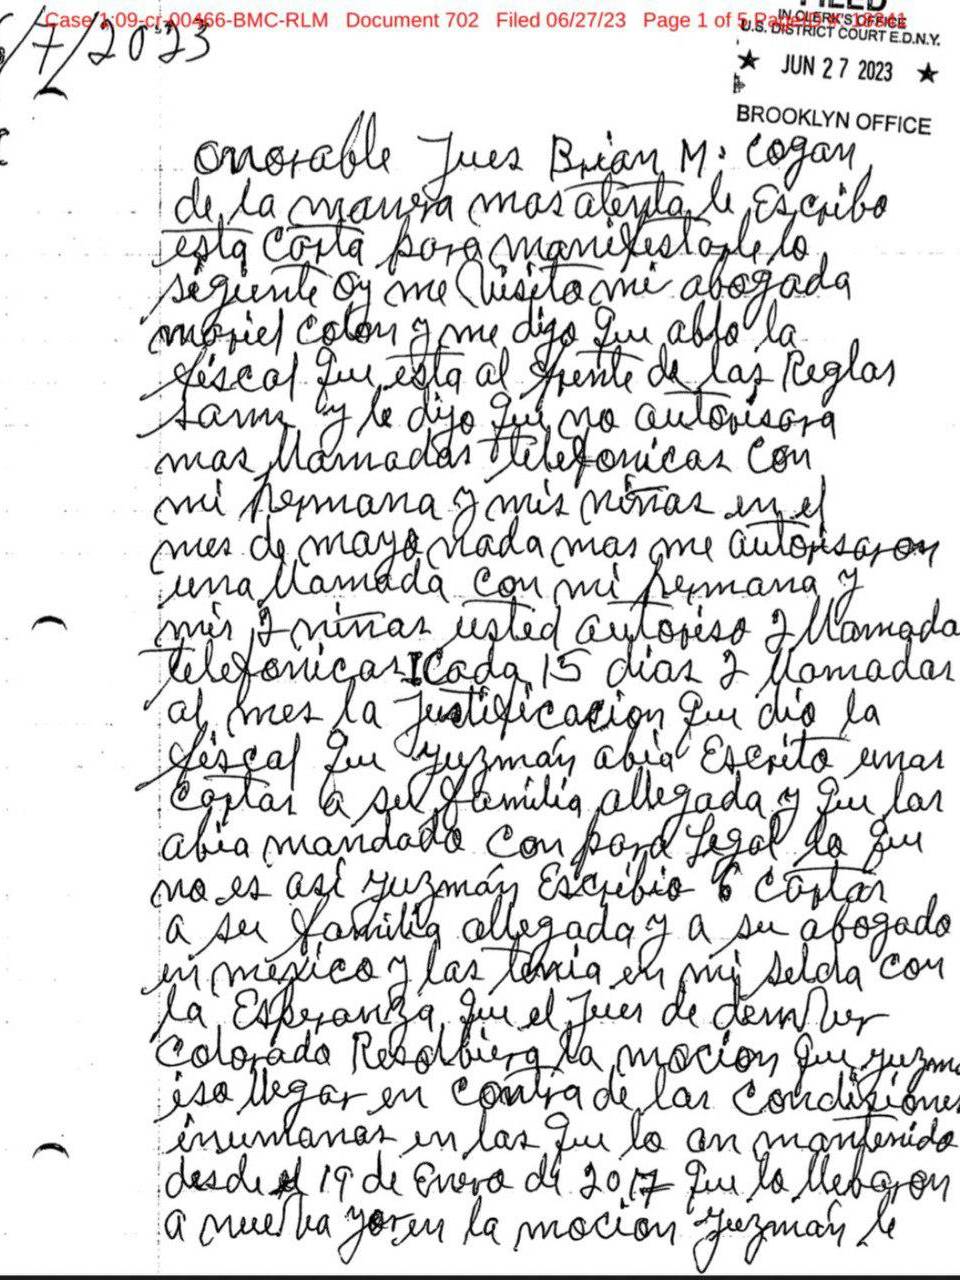 Case 1:09-cr-00466-BMC-RLM Document 702 Filed 06/27/23 Page 1 of 5
FILED
IN CLERK'S OFFICE
U.S. DISTRICT COURT E.D.N.Y.
★ JUN 27 2023 ★
BROOKLYN OFFICE
/7/2023
Onorable Jues Brian M. Cogan
de la manera mas atenta le Escribo
esta Carta para manifestarle lo
sigiente oy me Visito mi abogada
mariel colon y me dijo que ablo la
fiscal que esta al frente de las Reglas
sams y le dijo que no autorisara
mas llamadas telefonicas con
mi hermana y mis niñas en el
mes de mayo nada mas me autorisaron
una llamada con mi hermana y
mis 2 niñas usted autoriso 2 llamada
telefonicas Cada 15 dias 2 llamadas
al mes la Justificacion que dio la
fiscal que Guzmán abia Escrito unas
Cartas a su familia allegada y que las
abia mandado con para Legal lo que
no es así Guzmán Escribio 6 cartas
a su familia allegada y a su abogado
en mexico y las tenia en mi selda con
la Esperanza que el Jues de denver
Colorado la mocion que Guzma
iso llegar en contra de las Condiziones
inumanas en las que lo an mantenido
desde el 19 de Enero de 2017 que lo llebaron
a nueba yor en la mocion Guzmán le